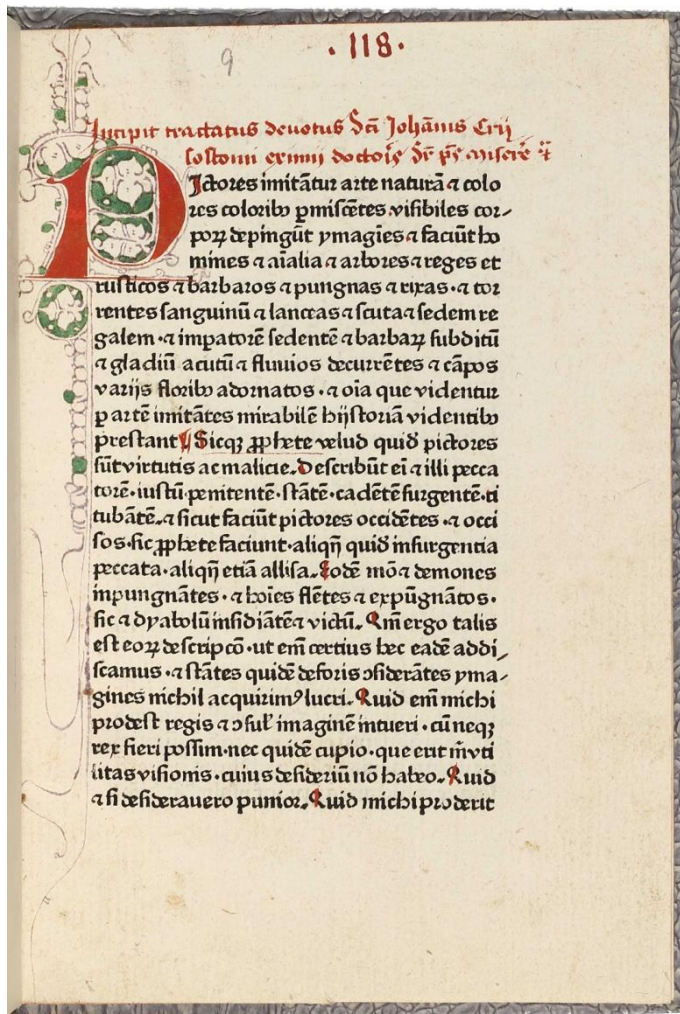 9
· 118 ·
Incipit tractatus deuotus Scī Johānis Crij
sostomi eximij doctoꝭ
PIctores imitātur arte naturā ⁊ colo
res coloribꝰ ꝑmiscētes visibiles cor⸗
poꝝ depingūt ymagīes ⁊ faciūt ho
mines ⁊ aīalia ⁊ arbores ⁊ reges et
rusticos ⁊ barbaros ⁊ pungnas ⁊ rixas· ⁊ tor
rentes sanguinū ⁊ lanceas ⁊ scuta ⁊ sedem re
galem · ⁊ imꝑatorē sedentē ⁊ barbaꝝ subditū
⁊ gladiū acutū ⁊ fluuios decurrētes ⁊ cāpos
varijs floribꝰ adornatos · ⁊ oīa que videntur
ꝑ artē imitātes mirabilē hijstoriā videntibꝰ
prestant Sicqꝫ ꝓphete velud quidā pictores
sūt virtutis ac malicie. Describūt eī ⁊ illi pecca
torē· iustū penitentē· stātē· cadētē surgentē· ti
tubātē. ⁊ sicut faciūt pictores occidētes · ⁊ occi
sos· sic ꝓphete faciunt· aliqñ quidā insurgentia
peccata· aliqñ etiā allisa. Eodē mō ⁊ demones
inpungnātes · ⁊ hoīes flētes ⁊ expūgnātos·
sic ⁊ dyabolū insidiātē ⁊ victū. Qm̄ ergo talis
est eoꝝ descripcō· ut em̄ certius hec eadē addi⸗
scamus · ⁊ stātes quidē deforis ꝯsiderātes yma⸗
gines nichil acquirimꝰ lucri. Quid em̄ michi
prodest regis ⁊ ꝯsul̕ imaginē intueri · cū neqꝫ
rex fieri possim· nec quidē cupio· que erit m̄ vti
litas visionis · cuius desideriū nō habeo. Quid
⁊ si desiderauero punior. Quid michi proderit